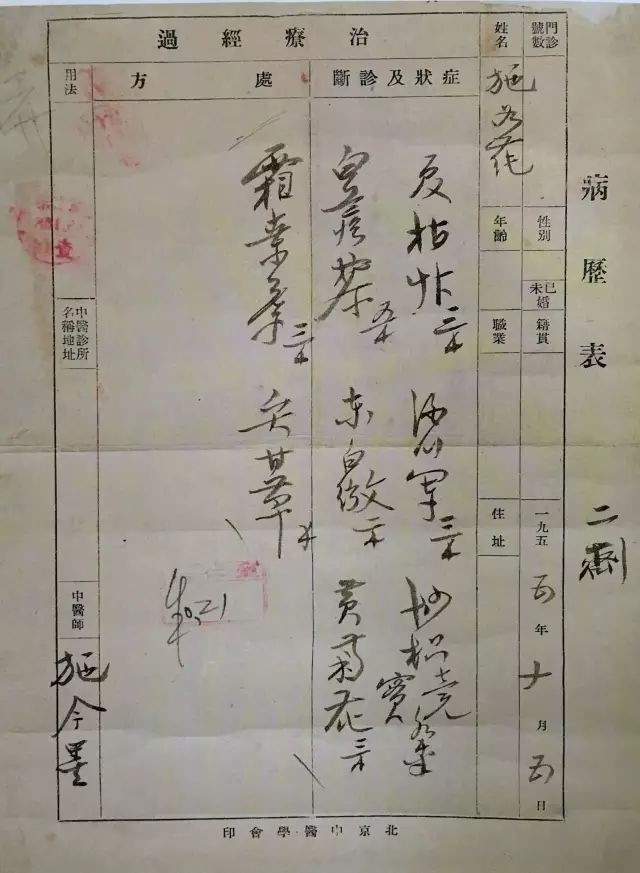 病歷表
二劑
門診號數
性別
已未婚
籍貫
一九五五年十月五日
姓名
施
年齡
職業
住址
治療經過
症狀及診斷
處方
用法
枯草三錢
酒川軍三錢
炒枳壳
蒺藜五錢
东白薇二錢
黄菊花三錢
霜桑葉三錢
炙甘草
中醫診所名稱地址
中醫師
施今墨
北京中醫學會印